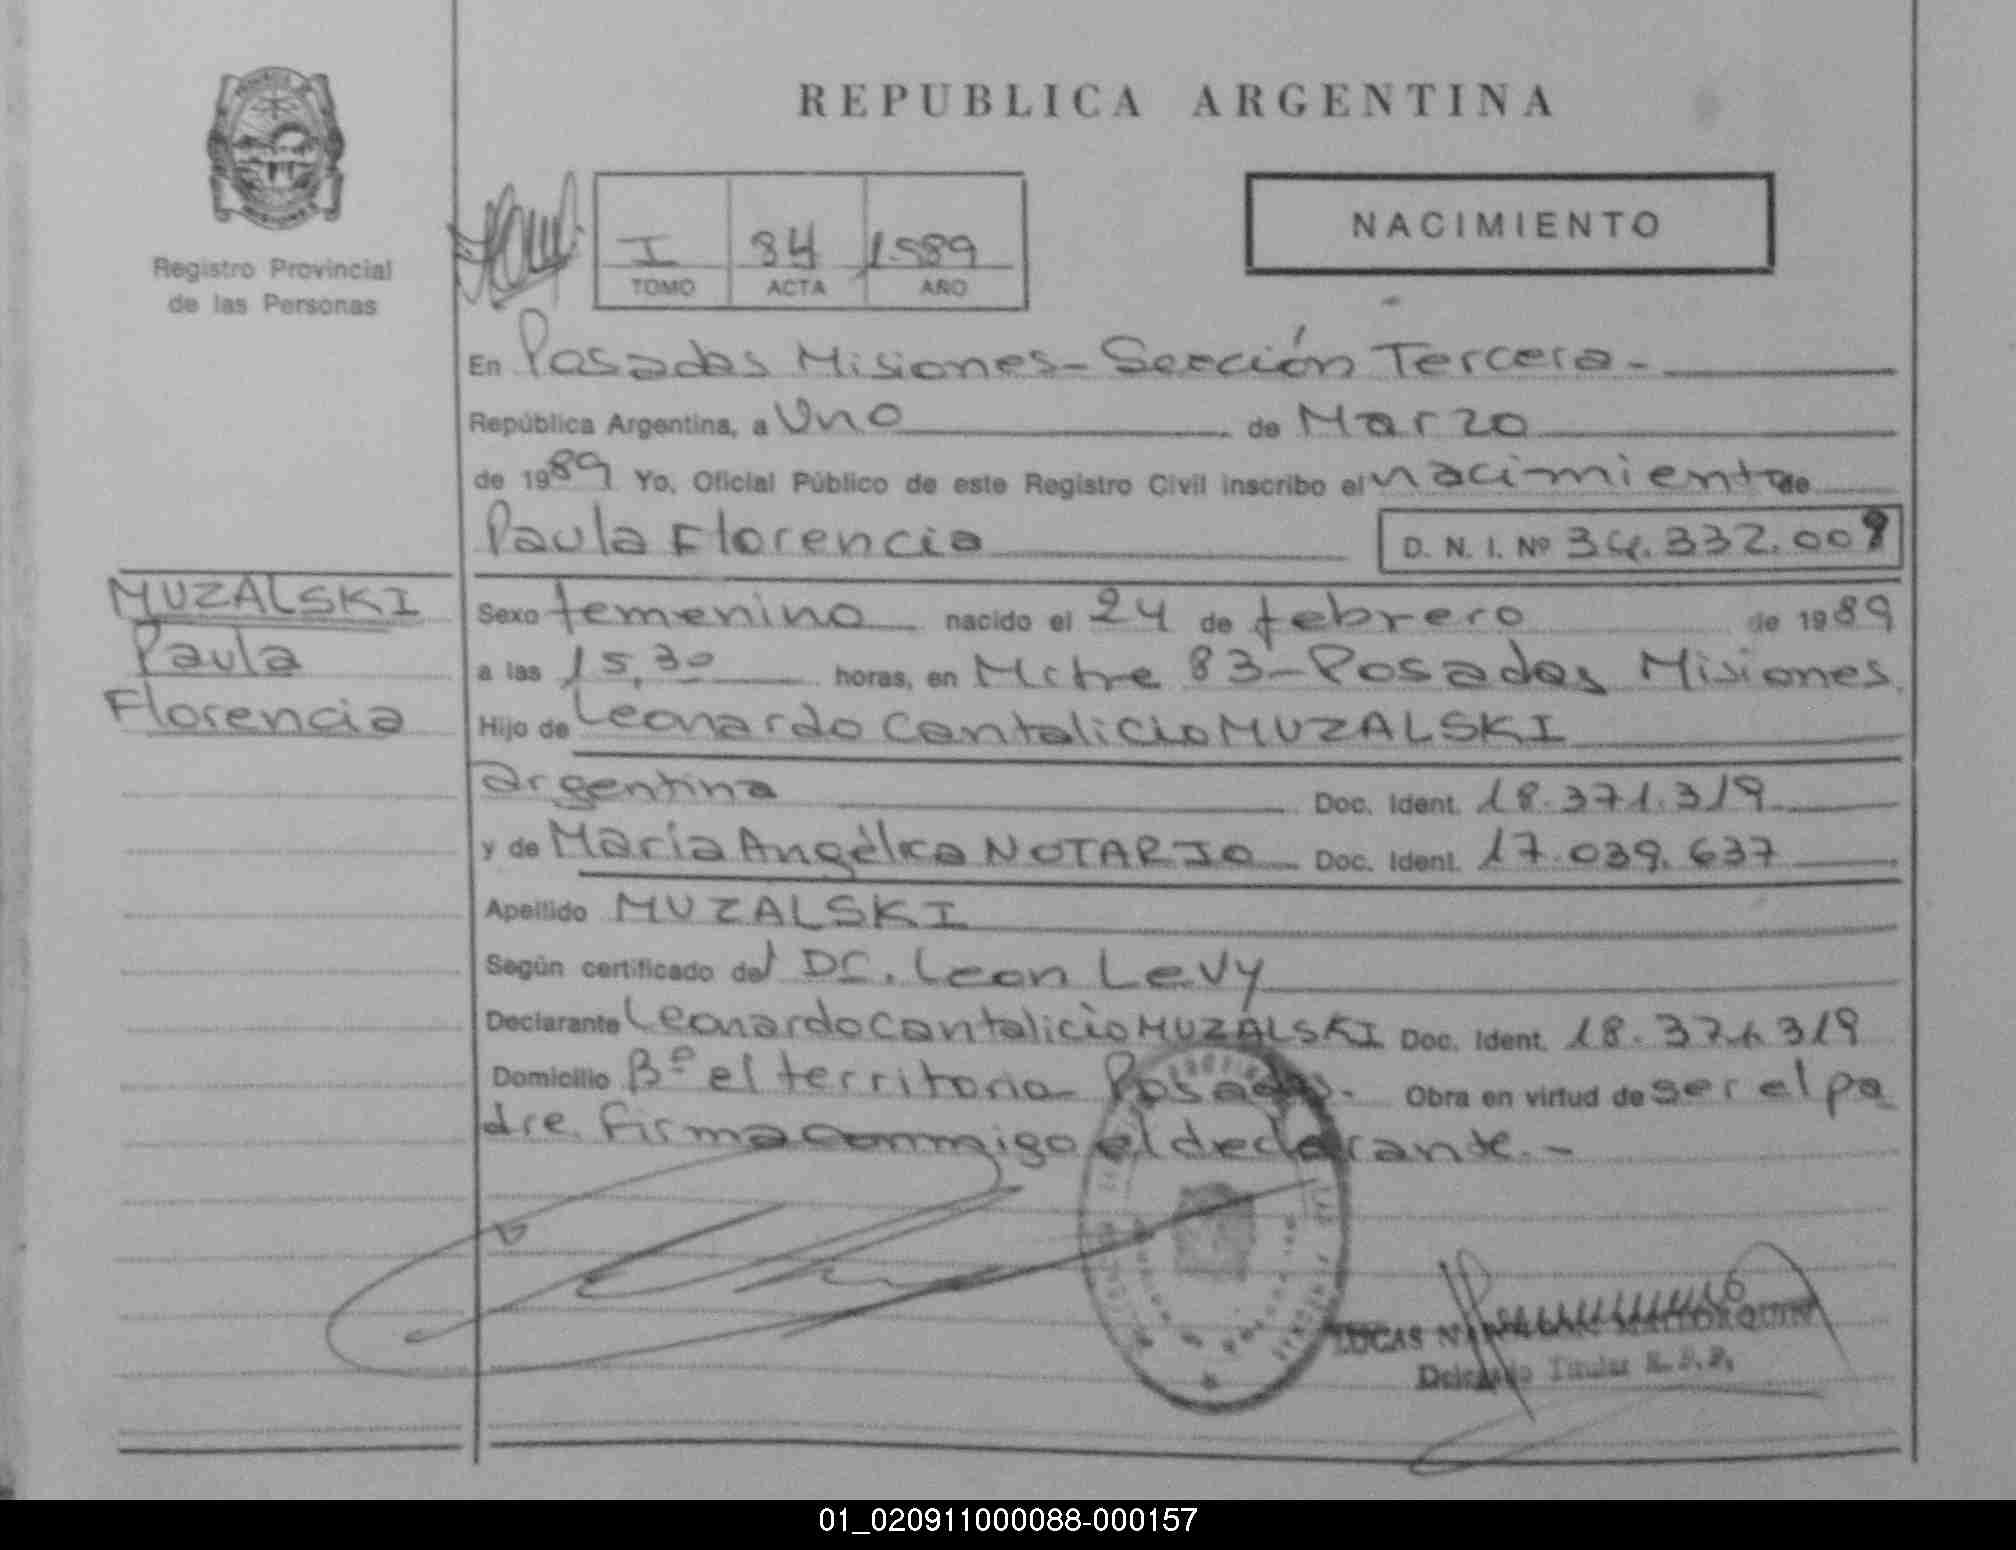 REPUBLICA ARGENTINA
Registro Provincial
de las Personas
I 84 1989
TOMO ACTA AÑO
NACIMIENTO
En Posadas Misiones - Sección Tercera -
República Argentina, a Uno de Marzo
de 1989 Yo, Oficial Público de este Registro Civil inscribo el nacimiento de
Paula Florencia D. N. I. Nº 34.332.009
MUZALSKI
Paula
Florencia
Sexo femenino nacido el 24 de febrero de 1989
a las 15,30 horas, en Mitre 83 - Posadas Misiones
Hijo de Leonardo Cantalicio MUZALSKI
argentina Doc. Ident. 18.371.319
y de María Angélica NOTARIO Doc. Ident. 17.039.637
Apellido MUZALSKI
Según certificado del Dr. Leon Levy
Declarante Leonardo Cantalicio MUZALSKI Doc. Ident. 18.371.319
Domicilio Bº el territorio - Posadas - Obra en virtud de ser el pa
dre. Firma conmigo el declarante. -
LUCAS
Delegado Titular R. P. P.
01_020911000088-000157